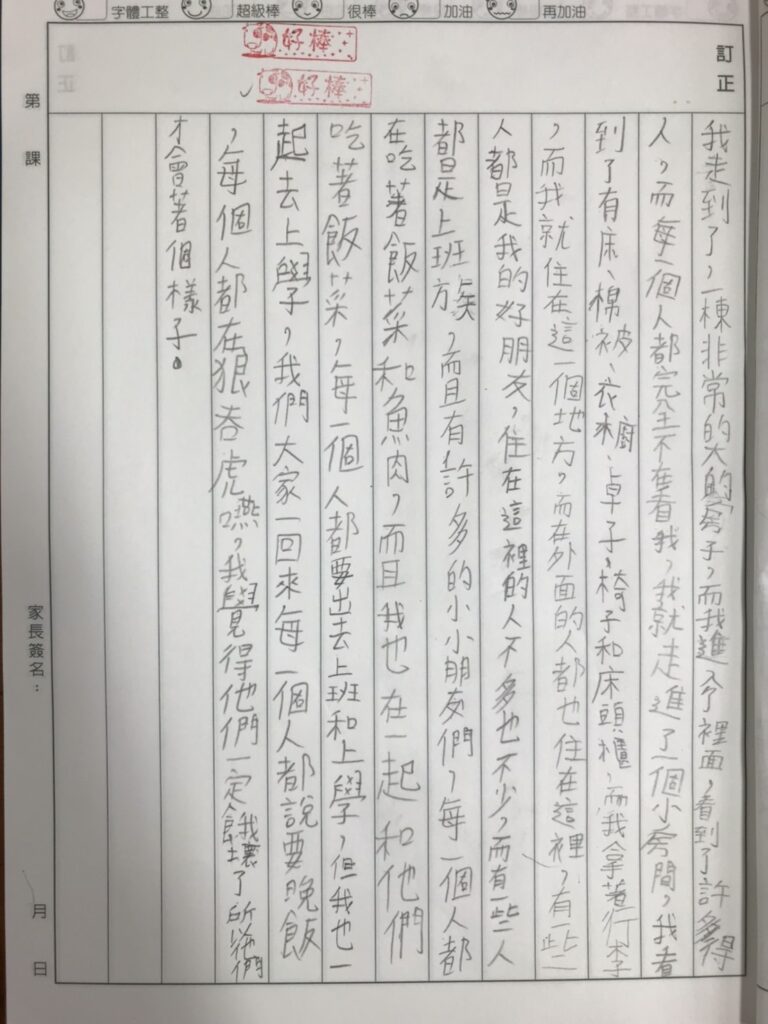 字體工整
超級棒
很棒
加油
再加油
訂正
好棒
好棒
我走到了，一棟非常的大的房子，而我進分裡面，看到了許多得
人，而每一個人都完全不在看我，我就走進了一個小房間，我看
到了有床、棉被、衣櫥、桌子、椅子和床頭櫃，而我拿著行李
，而我就住在這一個地方，而在外面的人都也住在這裡，有一些
人都是我的好朋友，住在這裡的人不多也不少，而有一些人
都是上班族，而且有許多的小小朋友們，每一個人都
在吃著飯菜和魚肉，而且我也在一起和他們
吃著飯菜，每一個人都要出去上班和上學，但我也一
起去上學，我們大家一回來每一個人都說要晚飯
，每個人都在狼吞虎嚥，我覺得他們一定餓壞了所以他們
才會著個樣子。
第 課
家長簽名：
月 日